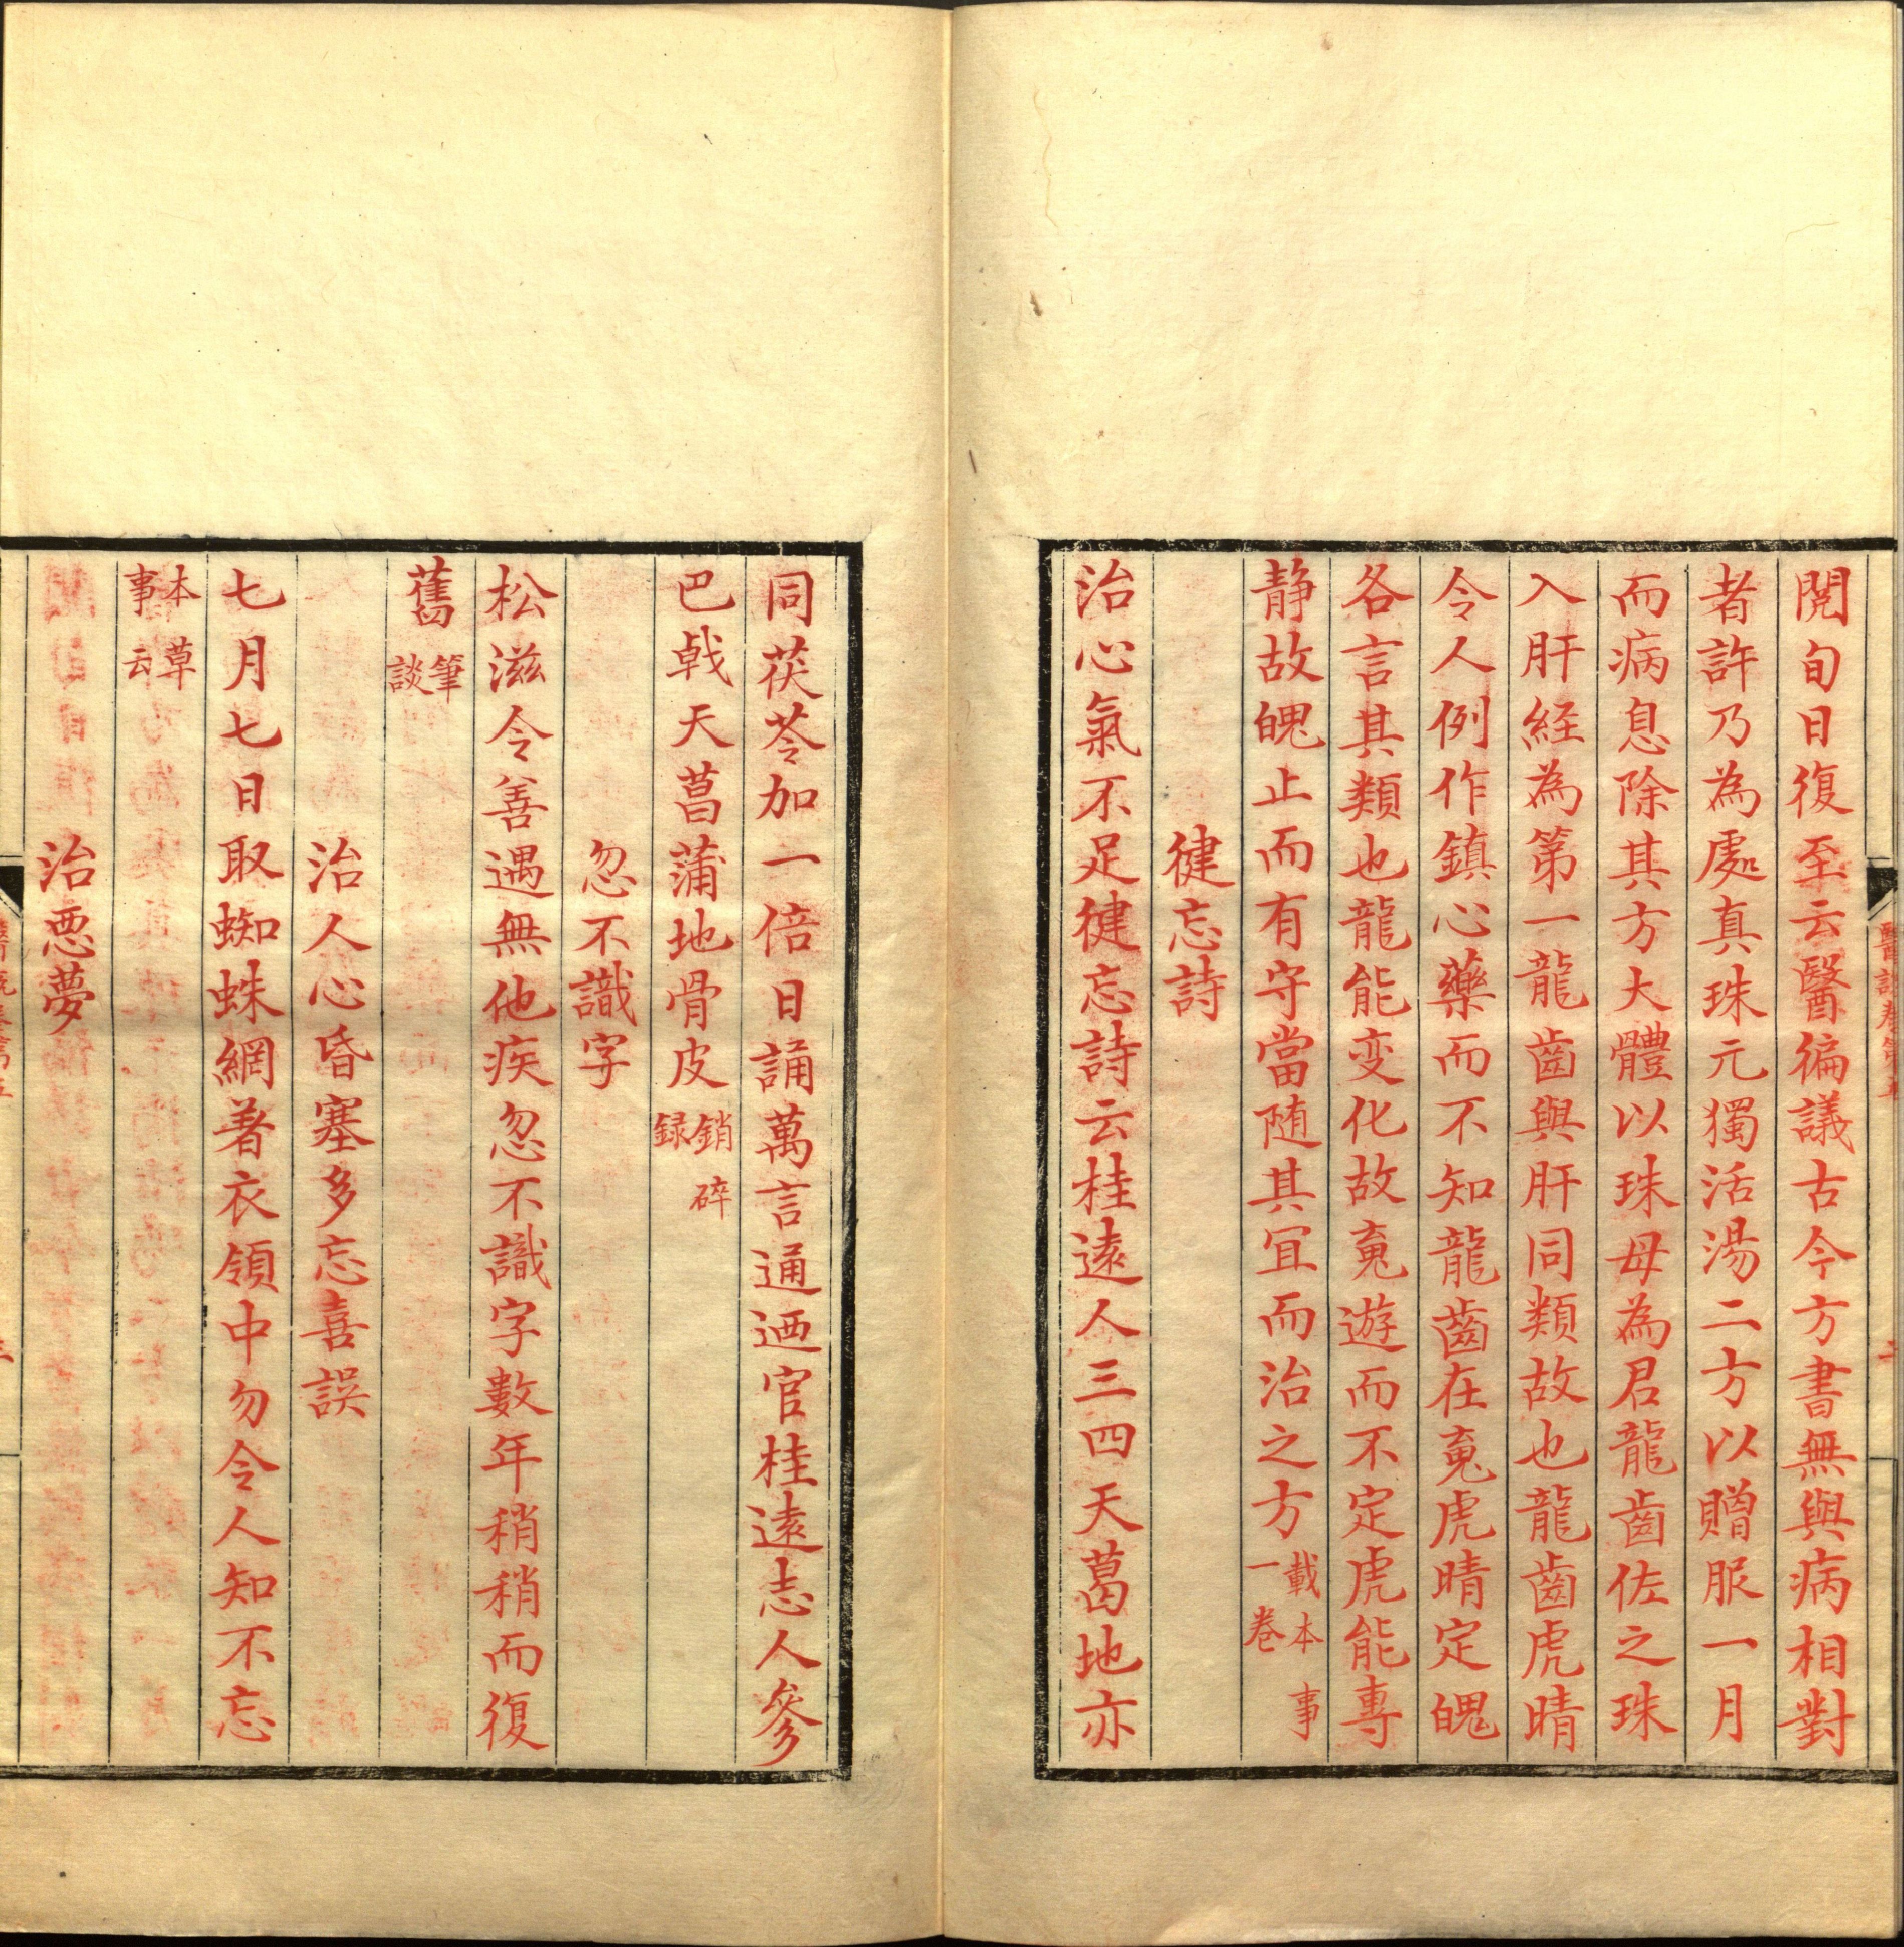 閱旬日復至云醫徧議古今方書無與病相對
者許乃為處真珠元獨活湯二方以贈服一月
而病息除其方大體以珠母為君龍齒佐之珠
入肝経為第一龍齒與肝同類故也龍齒虎晴
令人例作鎮心藥而不知龍齒在䰟虎晴定魄
各言其類也龍能变化故䰟遊而不定虎能專
静故魄止而有守當随其宜而治之方載本事一卷
健忘詩
治心氣不足健忘詩云桂遠人三四天菖地亦
同茯苓加一倍日誦萬言通迺官桂遠志人參
巴戟天菖蒲地骨皮銷碎録
忽不識字
松滋令善遇無他疾忽不識字數年稍稍而復
舊筆談
治人心昏塞多忘喜誤
七月七日取蜘蛛網著衣領中勿令人知不忘
本草事云
治悪夢